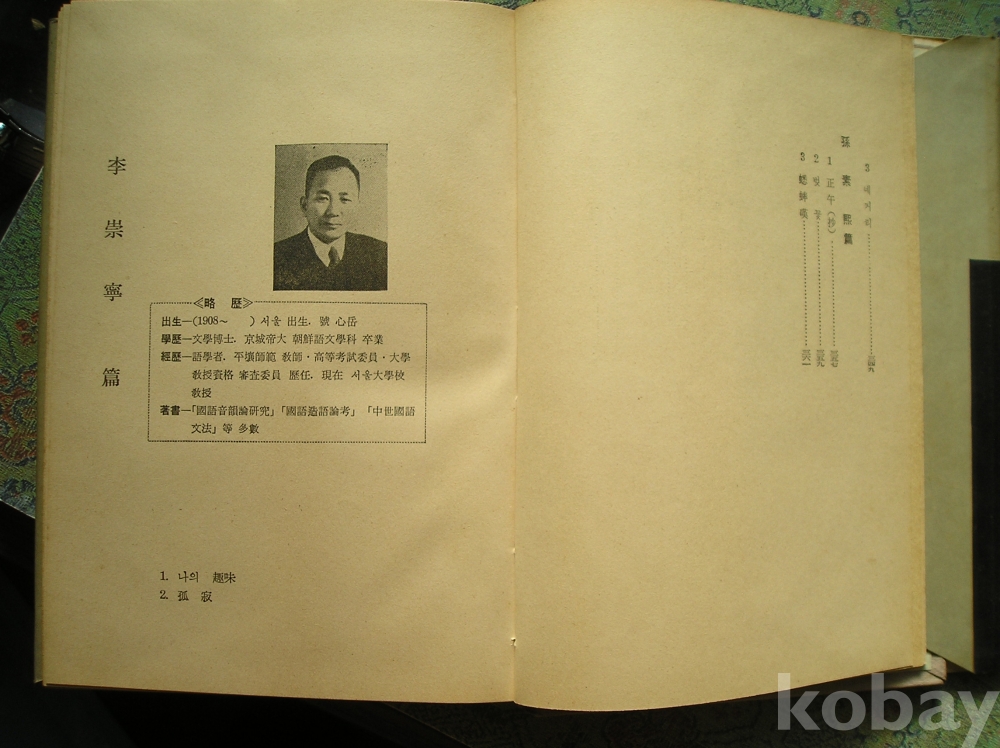 李崇寧篇
≪略 歷≫
出生―(1908～ ) 서울 出生. 號 心岳
學歷―文學博士. 京城帝大 朝鮮語文學科 卒業
經歷―語學者. 平壤師範 敎師·高等考試委員·大學
敎授資格 審査委員 歷任. 現在 서울大學校
敎授
著書―「國語音韻論硏究」「國語造語論考」「中世國語
文法」等 多數
1. 나의 趣味
2. 孤 寂
3
孫 熙篇
1 正午(抄)
2 꽃
3
kobay